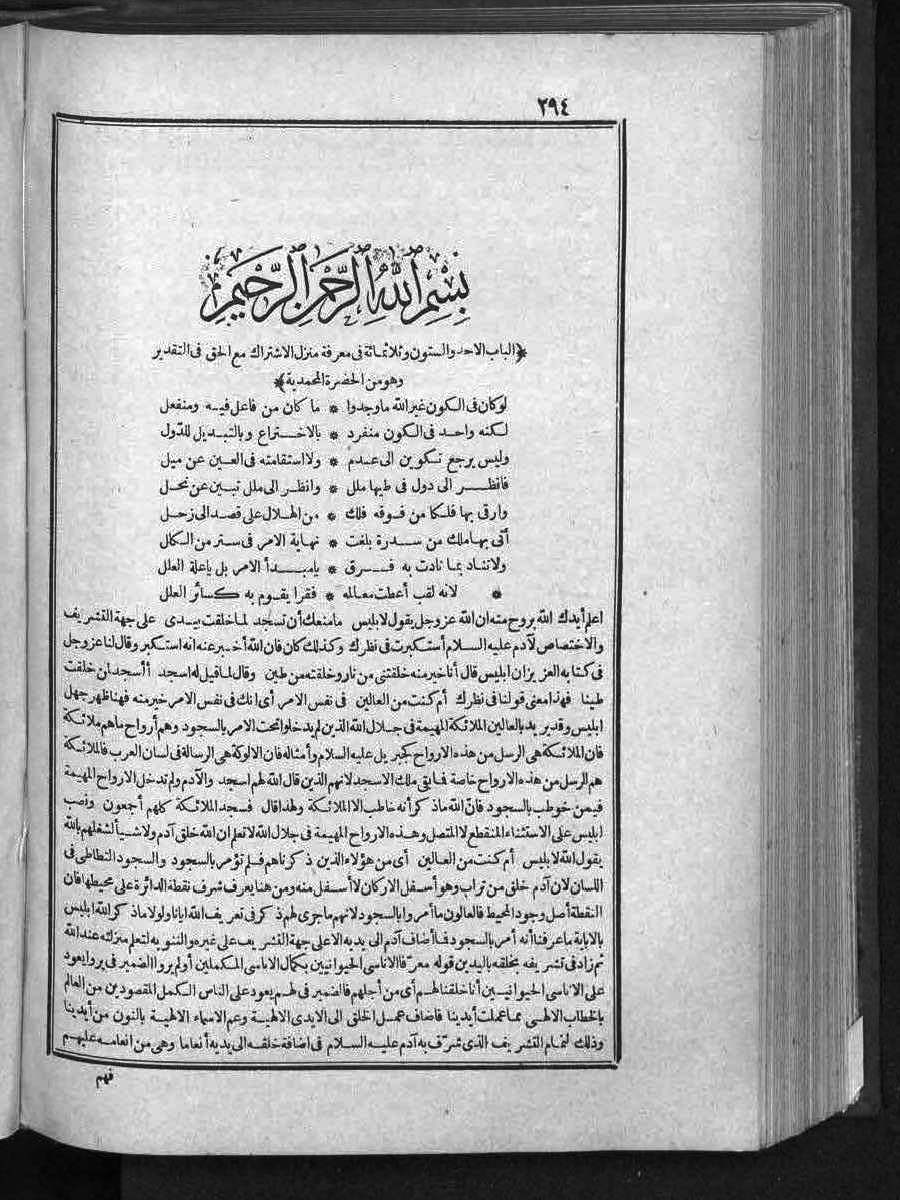 ٢٩٤
بِسْمِ ٱللّٰهِ ٱلرَّحْمٰنِ ٱلرَّحِيمِ
﴿الباب الاحد والستون وثلاثمائة فى معرفة منزل الاشتراك مع الحق فى التقدير
وهو من الحضرة المحمدية﴾
لو كان فى الكون غير الله ما وجدوا * ما كان من فاعل فيه ومنفعل
لكنه واحد فى الكون منفرد * بالاختراع وبالتبديل للدّول
وليس يرجع تكوين الى عدم * ولا استقامته فى العين عن ميل
فانظر الى دول فى طيها ملل * وانظر الى ملل تبين عن نحل
وارقى بها فلكا من فوقه فلك * من الهلال على قصد الى زحل
أتى بها ملك من سدرة بلغت * نهاية الامر فى ستر من الكال
ولا تناد بما نادت به فرق * يا مبدأ الامر بل يا علة العلل
* لانه لقب أعطت معالمه * فقرا يقوم به كسائر العلل
اعلم أيدك الله بروح منه ان الله عز وجل يقول لابليس ما منعك أن تسجد لما خلقت بيدى على جهة التشريف
والاختصاص لآدم عليه السلام أستكبرت فى نظرك وكذلك كان فان الله أخبر عنه انه استكبر وقال لنا عز وجل
فى كتابه العزيز ان ابليس قال أنا خير منه خلقتنى من نار وخلقته من طين وقال لما قيل له اسجد أأسجد لمن خلقت
طينا فهذا معنى قولنا فى نظرك أم كنت من العالين فى نفس الامر أى انك فى نفس الامر خير منه فهنا ظهر جهل
ابليس وقد يريد بالعالين الملائكة المهيمة فى جلال الله الذين لم يدخلوا تحت الامر بالسجود وهم أرواح ما هم ملائكة
فان الملائكة هى الرسل من هذه الارواح كجبريل عليه السلام وأمثاله فان الالوكة هى الرسالة فى لسان العرب فالملائكة
هم الرسل من هذه الارواح خاصة فما بقى ملك الا سجد لانهم الذين قال الله لهم اسجدوا لآدم ولم تدخل الارواح المهيمة
فيمن خوطب بالسجود فانّ الله ما ذكر أنه خاطب الا الملائكة ولهذا قال فسجد الملائكة كلهم أجمعون ونصب
ابليس على الاستثناء المنقطع لا المتصل وهذه الارواح المهيمة فى جلال الله لا تعلم ان الله خلق آدم ولا شيأ لشغلهم بالله
يقول الله لابليس أم كنت من العالين أى من هؤلاء الذين ذكرناهم فلم تؤمر بالسجود والسجود التطاطى فى
اللسان لان آدم خلق من تراب وهو أسفل الاركان لا أسفل منه ومن هنا يعرف شرف نقطة الدائرة على محيطها فان
النقطة أصل وجود المحيط فالعالون ما أمروا بالسجود لانهم ما جرى لهم ذكر فى تعريف الله ايانا ولولا ما ذكر الله ابليس
بالاباية ما عرفنا أنه أمر بالسجود فما أضاف آدم الى يديه الا على جهة التشريف على غيره والتنويه لتعلم منزلته عند الله
ثم زاد فى تشريفه بخلقه باليدين قوله معرّفا الاناسى الحيوانيين بكمال الاناسى المكملين أولم يروا الضمير فى يروا يعود
على الاناسى الحيوانيين أنا خلقنا لهم أى من أجلهم فالضمير فى لهم يعود على الناس الكمل المقصودين من العالم
بالخطاب الالهى مما عملت أيدينا فاضاف عمل الخلق الى الايدى الالهية وعم الاسماء الالهية بالنون من أيدينا
وذلك لتمام التشريف الذى شرّف به آدم عليه السلام فى اضافة خلقه الى يديه أنعاما وهى من انعامه عليهم
فهم